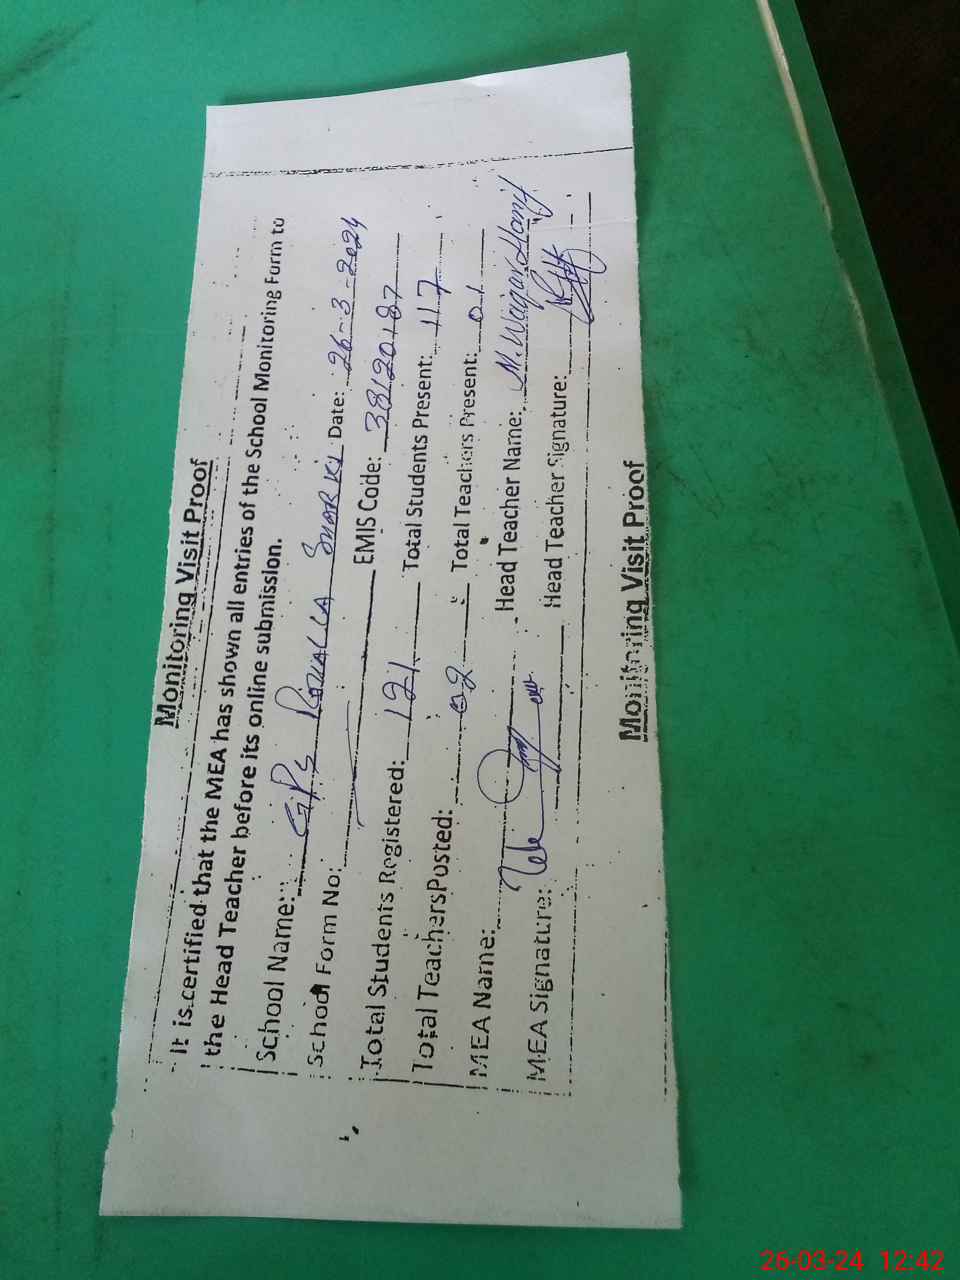 Monitoring Visit Proof
It is certified that the MEA has shown all entries of the School Monitoring Form to
the Head Teacher before its online submission.
School Name: GPS Date: 26-3-2024
School Form No: EMIS Code: 38120187
Total Students Registered: 121 Total Students Present: 117
Total Teachers Posted: 02 Total Teachers Present: 01
MEA Name: Head Teacher Name: M. Waqar Hanif
MEA Signature: Head Teacher Signature:
Monitoring Visit Proof
26-03-24 12:42